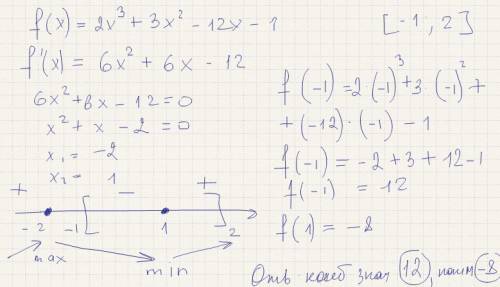 f(x) = 2x³ + 3x² - 12x - 1
f'(x) = 6x² + 6x - 12
6x² + 6x - 12 = 0
x² + x - 2 = 0
x₁ = -2
x₂ = 1
+ - +
-2 -1 1 2
max
min
[-1, 2]
f(-1) = 2(-1)³ + 3·(-1)² +
+ (-12)·(-1) - 1
f(-1) = -2 + 3 + 12 - 1
f(-1) = 12
f(1) = -8
Отв наиб знач 12, наим -8